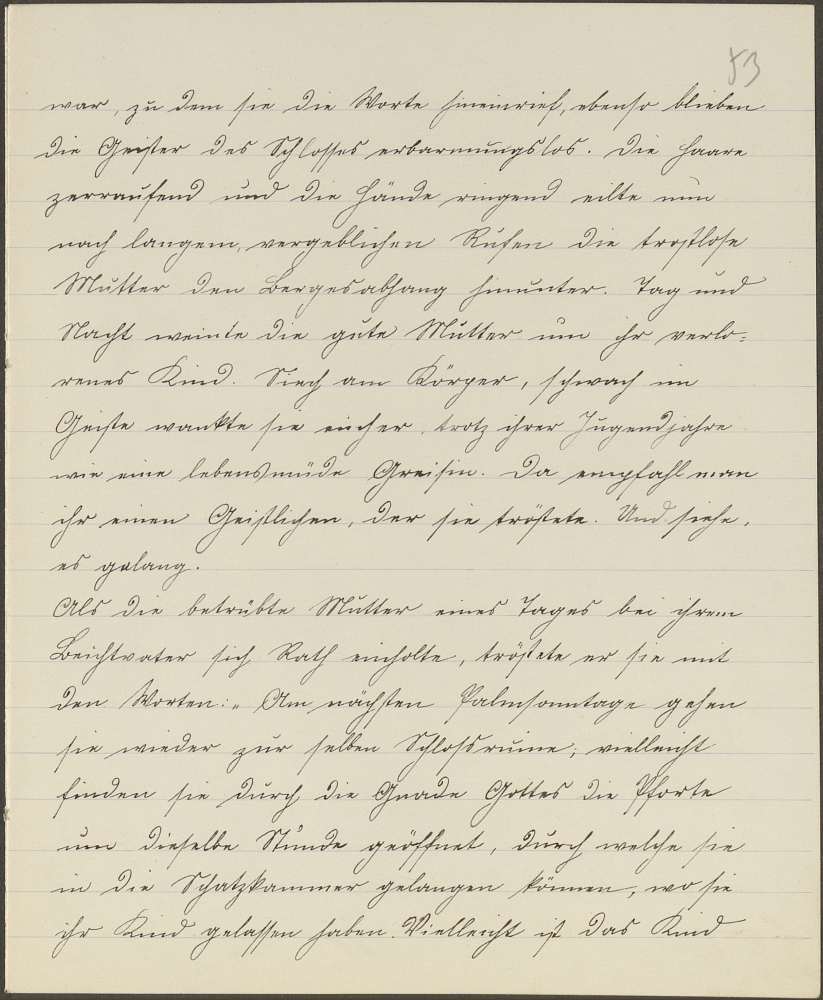 53
war, zu dem sie die Worte hineinrief, ebenso blieben
die Geister des Schlosses erbarmungslos. Die Haare
zerraufend und die Hände ringend eilte nun
nach langem, vergeblichen Rufen die trostlose
Mutter den Bergesabhang hinunter. Tag und
Nacht weinte die gute Mutter um ihr verlo-
renes Kind. Siech am Körper, schwach im
Geiste wankte sie eicher, trotz ihrer Jugendjahre
wie eine lebensmüde Greisin. Da empfahl man
ihr einen Geistlichen, der sie tröstete. Und siehe,
es gelang.
Als die betrübte Mutter eines Tages bei ihrem
Beichtvater sich Rath einholte, tröstete er sie mit
den Worten: „Am nächsten Palmsonntage gehen
sie wieder zur selben Schlossruine; vielleicht
finden sie durch die Gnade Gottes die Pforte
um dieselbe Stunde geöffnet, durch welche sie
in die Schatzkammer gelangen können, wo sie
ihr Kind gelassen haben. Vielleicht ist das Kind